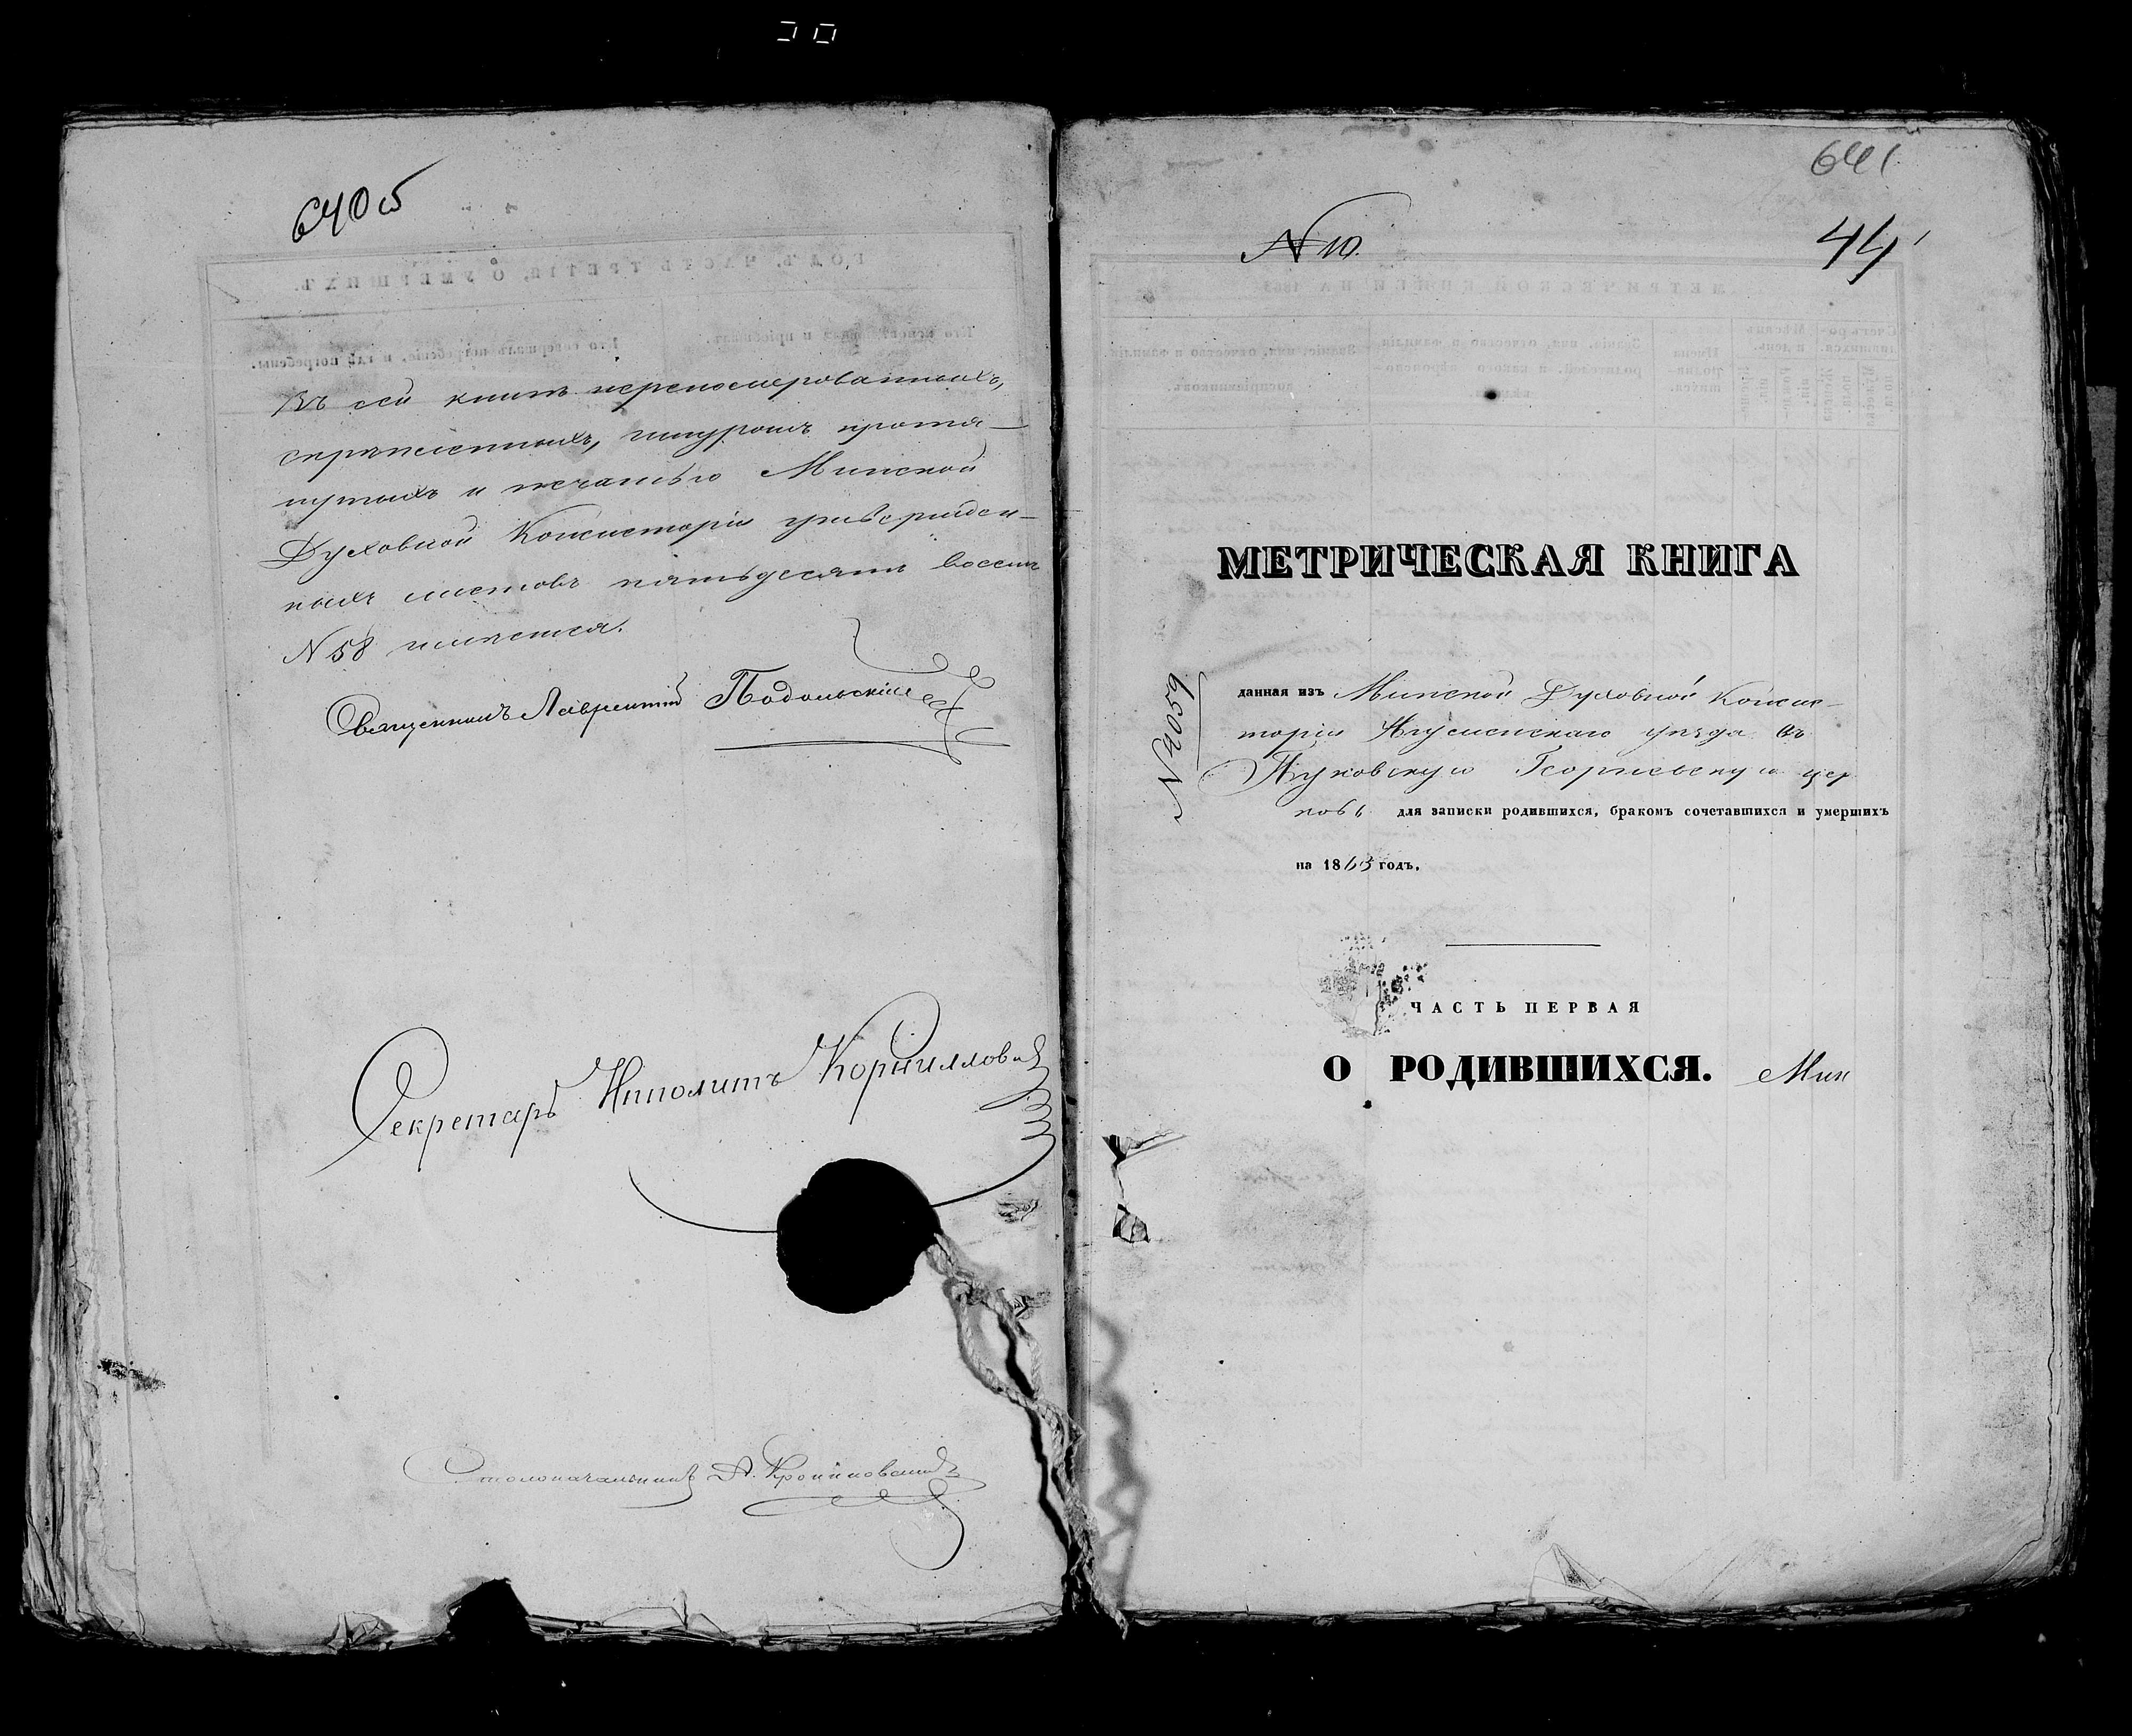 640 об
Въ сей книгѣ перенумерованныхъ,
скрѣпленныхъ, шнуромъ протя-
нутыхъ и печатью Минской
Духовной Консисторіи утвержден-
ныхъ листовъ пятьдесятъ восемь
N 58 имѣется.
Священникъ Лаврентій Подольскій
Секретарь Иполитъ Корниллови
Столоначальникъ А.
641
N 10.
44
МЕТРИЧЕСКАЯ КНИГА
N 4059
данная изъ Минской Духовной Консис-
торіи Игуменскаго уѣзда въ
Пуковскую Георгіевскую цер
ковь для записки родившихся, бракомъ сочетавшихся и умершихъ
на 1863 годъ.
ЧАСТЬ ПЕРВАЯ
О РОДИВШИХСЯ. Мин